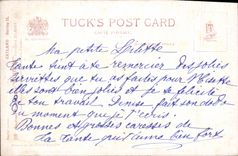 TUCK'S POST CARD
Ma petite Lilette
Tante tient à te remercier des jolies
serviettes que tu as faites pour
elles sont bien jolies et je te félicite
de ton travail. Denise fait son dodo
du moment que je t'écris.
Bonnes et grosses caresses de
La tante qui t'aime bien fort